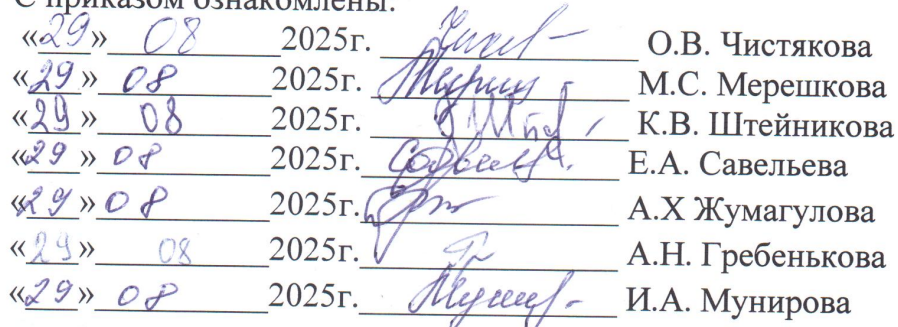 С приказом ознакомлены:
«29» 08 2025г. О.В. Чистякова
«29» 08 2025г. М.С. Мерешкова
«29» 08 2025г. К.В. Штейникова
«29» 08 2025г. Е.А. Савельева
«29» 08 2025г. А.Х Жумагулова
«29» 08 2025г. А.Н. Гребенькова
«29» 08 2025г. И.А. Мунирова